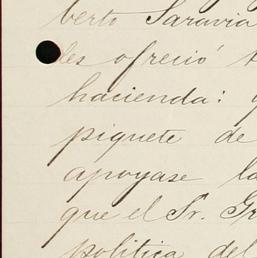 berto Saravia
les ofreció
hacienda:
piquete de
apoyase la
que el Sr. Gr
politica del